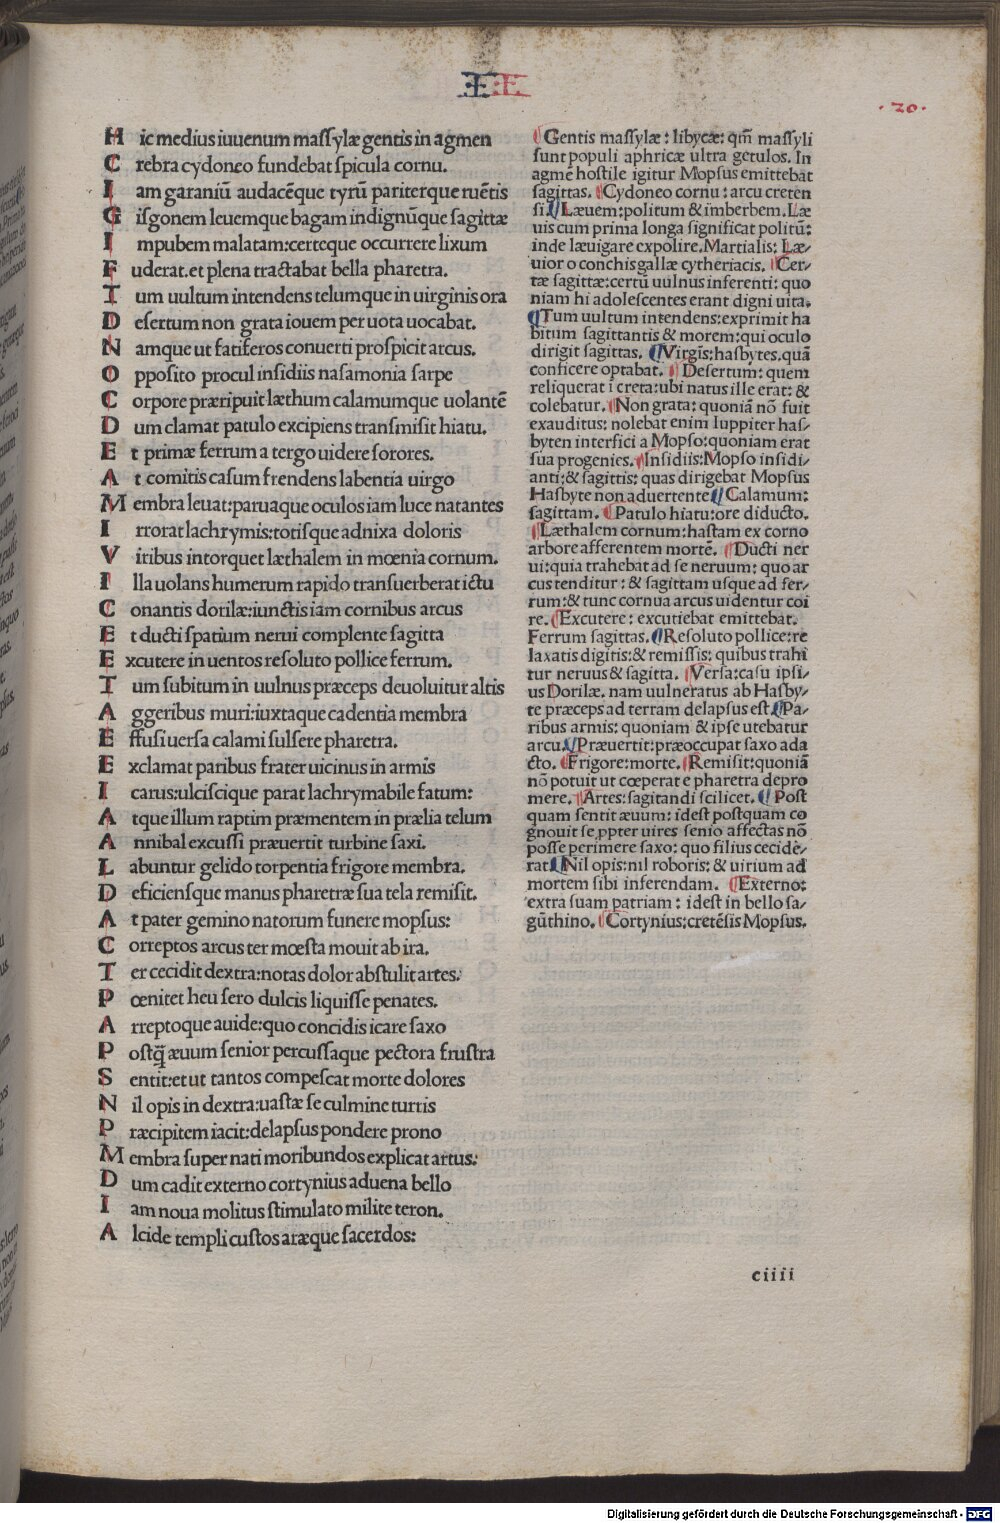 II
.20.
H ic medius iuuenum maſſylæ gentis in agmen
C rebra cydoneo fundebat ſpicula cornu.
I am garaniū audacēque tyrū pariterque ruētis
G iſgonem leuemque bagam indignūque ſagittæ
I mpubem malatam:certeque occurrere lixum
F uderat.et plena tractabat bella pharetra.
T um uultum intendens telumque in uirginis ora
D eſertum non grata iouem per uota uocabat.
N amque ut fatiferos conuerti proſpicit arcus.
O ppoſito procul inſidiis naſamonia ſarpe
C orpore præripuit læthum calamumque uolantē
D um clamat patulo excipiens tranſmiſit hiatu.
E t primæ ferrum a tergo uidere ſorores.
A t comitis caſum frendens labentia uirgo
M embra leuat:paruaque oculos iam luce natantes
I rrorat lachrymis:totiſque adnixa doloris
V iribus intorquet læthalem in mœnia cornum.
I lla uolans humerum rapido tranſuerberat ictu
C onantis dorilæ:iunctis iam cornibus arcus
E t ducti ſpatium nerui complente ſagitta
E xcutere in uentos reſoluto pollice ferrum.
T um ſubitum in uulnus præceps deuoluitur altis
A ggeribus muri:iuxtaque cadentia membra
E ffuſi uerſa calami fulſere pharetra.
E xclamat paribus frater uicinus in armis
I carus:ulciſcique parat lachrymabile fatum:
A tque illum raptim præmentem in prælia telum
A nnibal excuſſi præuertit turbine ſaxi.
L abuntur gelido torpentia frigore membra.
D eficienſque manus pharetræ ſua tela remiſit.
A t pater gemino natorum funere mopſus:
C orreptos arcus ter mœſta mouit ab ira.
T er cecidit dextra:notas dolor abſtulit artes.
P œnitet heu ſero dulcis liquiſſe penates.
A rreptoque auide:quo concidis icare ſaxo
P oſtꝗ̄ æuum ſenior percuſſaque pectora fruſtra
S entit:et ut tantos compeſcat morte dolores
N il opis in dextra:uaſtæ ſe culmine turris
P ræcipitem iacit:delapſus pondere prono
M embra ſuper nati moribundos explicat artus:
D um cadit externo cortynius aduena bello
I am noua molitus ſtimulato milite teron.
A lcide templi cuſtos aræque ſacerdos:
¶Gentis maſſylæ: libycæ: qm̄ maſſyli
ſunt populi aphricæ ultra getulos. In
agmē hoſtile igitur Mopſus emittebat
ſagittas. ¶Cydoneo cornu: arcu creten
ſi.¶Læuem:politum & imberbem.Læ
uis cum prima longa ſignificat politū:
inde læuigare expolire.Martialis: Læ⸗
uior o conchis gallæ cytheriacis. ¶Cer⸗
tæ ſagittæ:certū uulnus inferenti: quo
niam hi adoleſcentes erant digni uita.
¶Tum uultum intendens:exprimit ha
bitum ſagittantis & morem:qui oculo
dirigit ſagittas. ¶Virgis:haſbytes.quā
conficere optabat. ¶Deſertum: quem
reliquerat ī creta:ubi natus ille erat: &
colebatur. ¶Non grata: quoniā nō fuit
exauditus: nolebat enim Iuppiter haſ⸗
byten interfici a Mopſo:quoniam erat
ſua progenies.¶Inſidiis:Mopſo inſidi⸗
anti:& ſagittis: quas dirigebat Mopſus
Haſbyte non aduertente¶Calamum:
ſagittam. ¶Patulo hiatu:ore diducto.
¶Læthalem cornum:haſtam ex corno
arbore afferentem mortē. ¶Ducti ner
ui:quia trahebat ad ſe neruum: quo ar
cus tenditur: & ſagittam uſque ad fer⸗
rum:& tunc cornua arcus uidentur coi
re.¶Excutere: excutiebat emittebat.
Ferrum ſagittas.¶Reſoluto pollice:re
laxatis digitis:& remiſſis: quibus trahi
tur neruus & ſagitta. ¶Verſa:caſu ipſi⸗
us Dorilæ. nam uulneratus ab Haſby⸗
te præceps ad terram delapſus eſt.¶Pa⸗
ribus armis: quoniam & ipſe utebatur
arcu.¶Præuertit:præoccupat ſaxo ada
cto. ¶Frigore:morte. ¶Remiſit:quoniā
nō potuit ut cœperat e pharetra depro
mere. ¶Artes:ſagitandi ſcilicet. ¶Poſt
quam ſentit æuum: ideſt poſtquam co
gnouit ſe ꝓpter uires ſenio affectas nō
poſſe perimere ſaxo: quo filius cecide⸗
rat.¶Nil opis:nil roboris: & uirium ad
mortem ſibi inferendam. ¶Externo:
extra ſuam patriam: ideſt in bello ſa⸗
gūthino. ¶Cortynius:cretēſis Mopſus.
ciiii
Digitalisierung gefördert durch die Deutsche Forschungsgemeinschaft - DFG